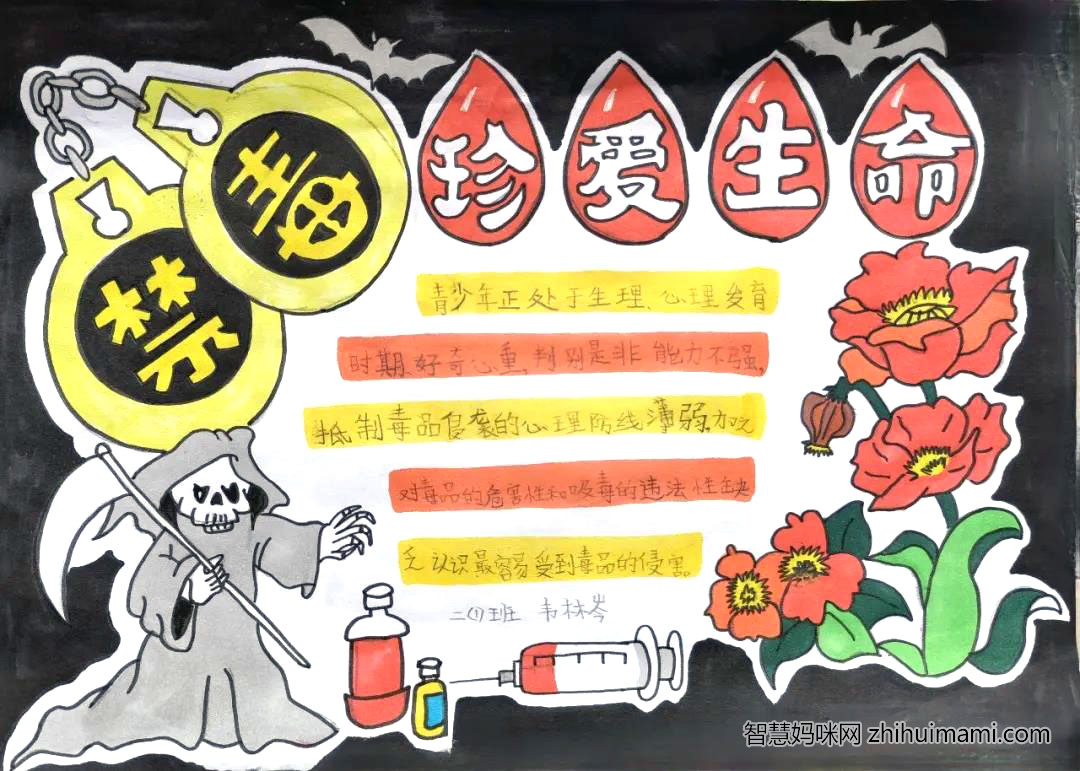 禁毒
珍爱生命
青少年正处于生理、心理发育
时期,好奇心重,判别是非能力不强,
抵制毒品侵袭的心理防线薄弱,加之
对毒品的危害性和吸毒的违法性缺
乏认识最容易受到毒品的侵害。
二(1)班 韦林岑
智慧妈咪网 zhihuimami.com